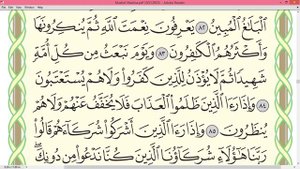 Mushaf Madina.pdf (SECURED) - Adobe Reader
ٱلْبَلَٰغُ ٱلْمُبِينُ ٨٢ يَعْرِفُونَ نِعْمَتَ ٱللَّهِ ثُمَّ يُنكِرُونَهَا
وَأَكْثَرُهُمُ ٱلْكَٰفِرُونَ ٨٣ وَيَوْمَ نَبْعَثُ مِن كُلِّ أُمَّةٍ
شَهِيدًا ثُمَّ لَا يُؤْذَنُ لِلَّذِينَ كَفَرُوا۟ وَلَا هُمْ يُسْتَعْتَبُونَ
٨٤ وَإِذَا رَءَا ٱلَّذِينَ ظَلَمُوا۟ ٱلْعَذَابَ فَلَا يُخَفَّفُ عَنْهُمْ وَلَا هُمْ
يُنظَرُونَ ٨٥ وَإِذَا رَءَا ٱلَّذِينَ أَشْرَكُوا۟ شُرَكَآءَهُمْ قَالُوا۟
رَبَّنَا هَٰٓؤُلَآءِ شُرَكَآؤُنَا ٱلَّذِينَ كُنَّا نَدْعُوا۟ مِن دُونِكَ